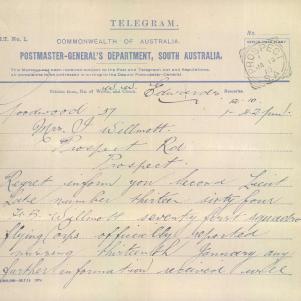 TELEGRAM.
T.T. No. 1. COMMONWEALTH OF AUSTRALIA. No.
POSTMASTER-GENERAL'S DEPARTMENT, SOUTH AUSTRALIA.
This Message has been received subject to the Post and Telegraph Act and Regulations.
All complaints to be addressed in writing to the Deputy Postmaster-General.
PROSPECT
Station from, No. of Words, Remarks.
Edwards
Goodwood 37 12.10
Mrs J Willmott
Prospect Rd
Prospect
Regret inform you Second Lieut
Late number thirteen sixty four
Willmott seventy first squadron
flying Corps officially reported
missing thirteenth January any
further information received will